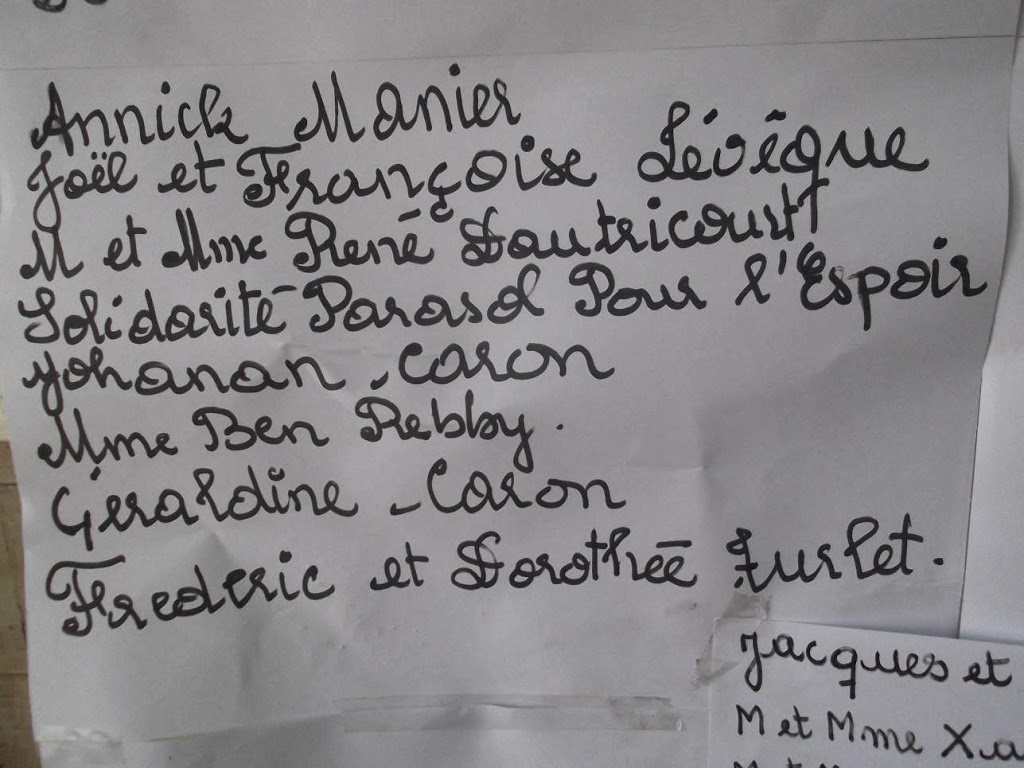 Annick Manier
Joël et Françoise Lévêque
M et Mme René Dautricourt
Solidarité Parasol Pour l'Espoir
Yohanan Caron
Mme Ben Rebby.
Gérardine Caron
Frederic et Dorothée Turlet.
Jacques et
M et Mme Xa